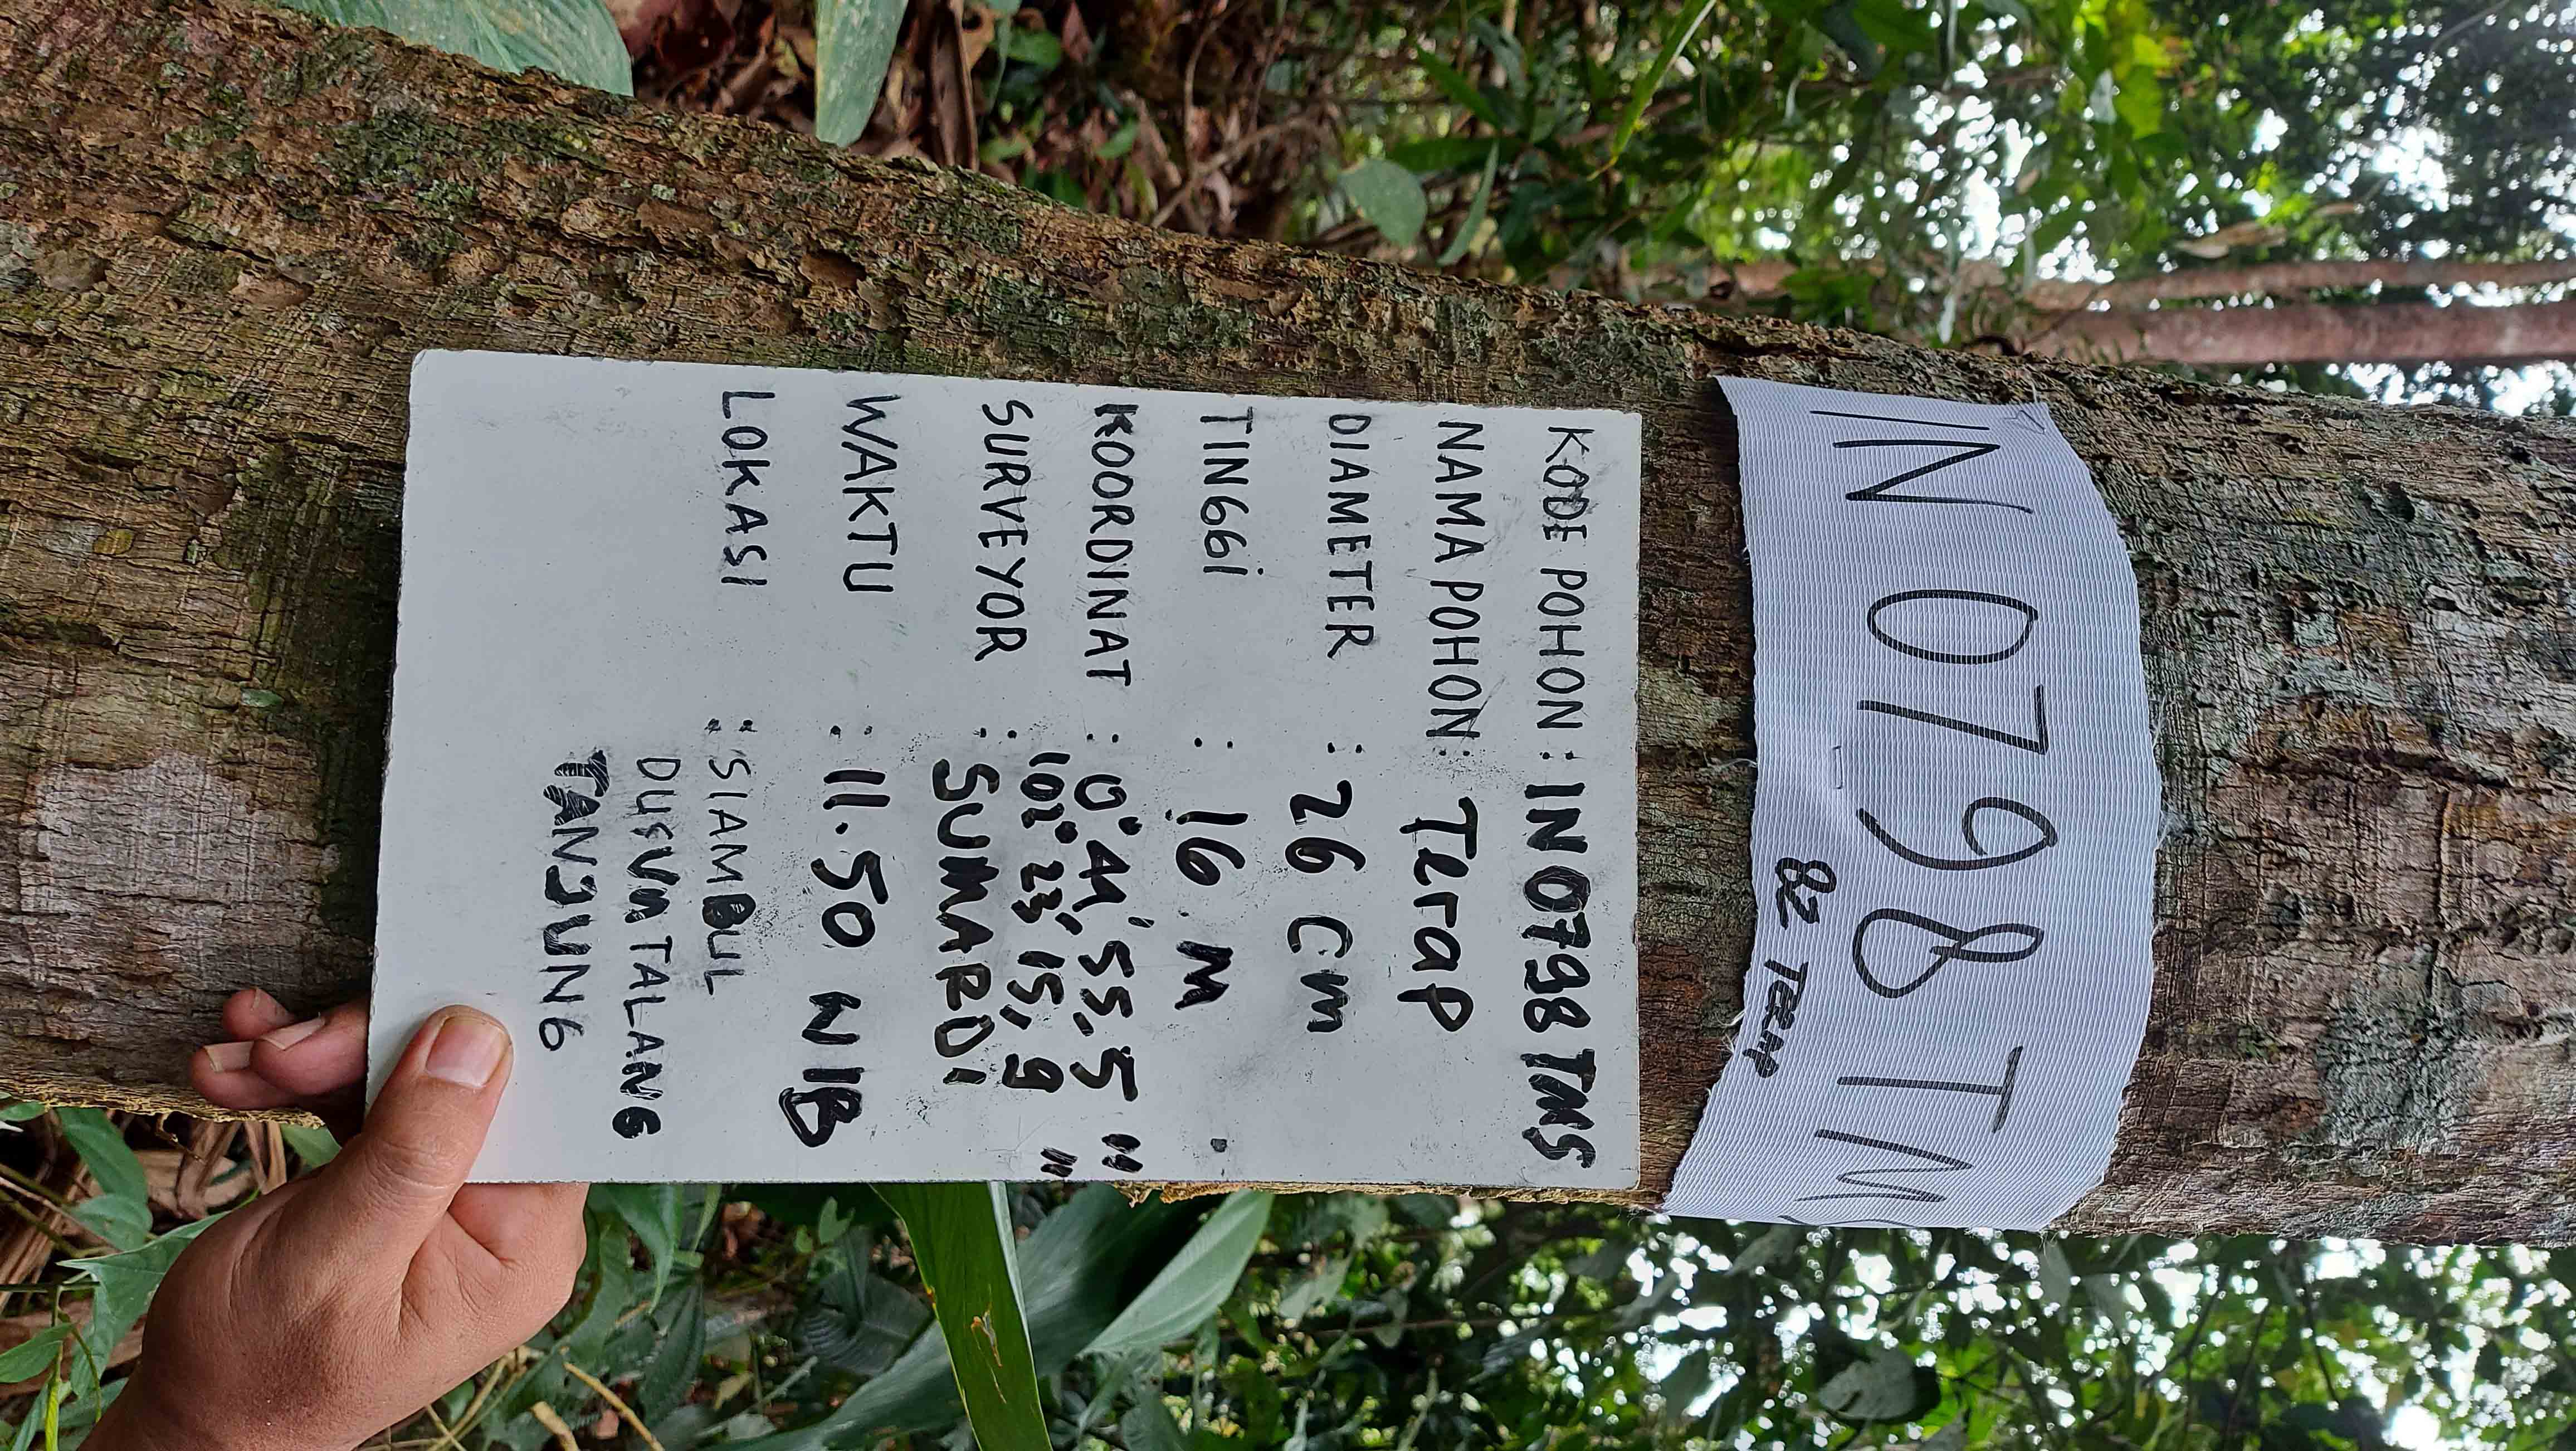 IN 0798 TM
82 TERAP
KODE POHON : IN 0798 TMS
NAMA POHON : Terap
DIAMETER : 26 Cm
TINGGi : 16 M
KOORDINAT : 0° 44' 55,5"
: 102° 23' 15,9"
SURVEYOR : SUMARDI
WAKTU : 11.50 WIB
LOKASI : SIAMBUL
DUSUN TALANG
TANJUNG